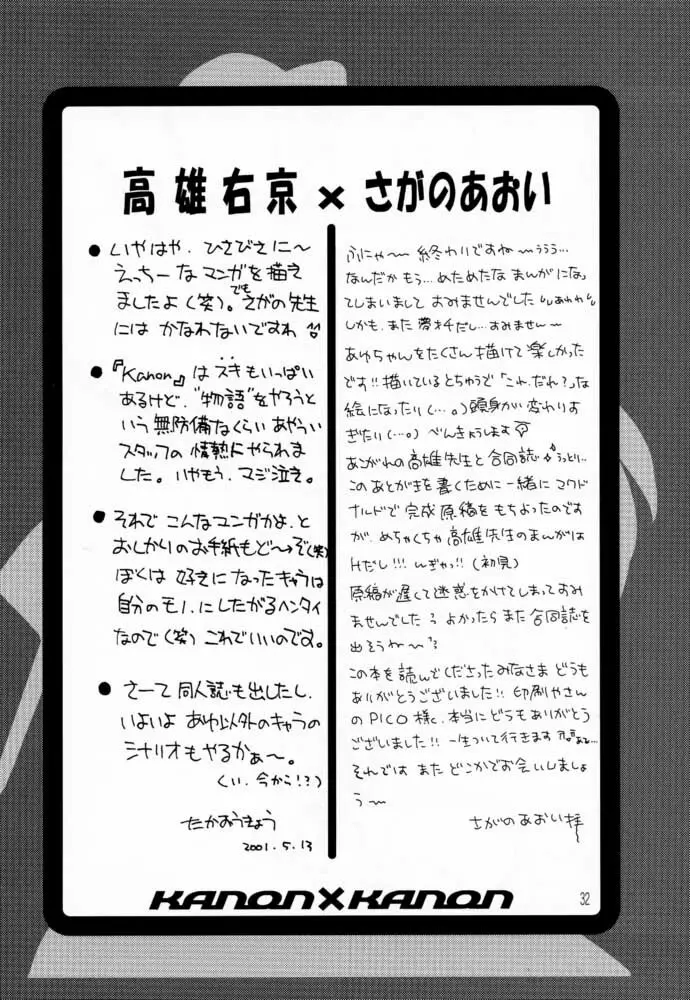 高雄右京×さがのあおい
● いやはや、ひさびさに〜
えっちーなマンガを描え
ましたよ(笑)。でもさがの先生
には かなわないですわ
● 『Kanon』は スキもいっぱい
あるけど、"物語"をやろうと
いう 無防備なくらい あやうい
スタッフの情熱にやられま
した。いやもう、マジ泣き。
● それで こんなマンガかよ、と
おしかりのお手紙もど〜ぞ(笑)
ぼくは 好きになったキャラは
自分のモノにしたがるヘンタイ
なので(笑) これでいいのです。
● さーて 同人誌も出したし、
いよいよ あゆ以外のキャラの
シナリオもやるかぁ〜。
(い、今から!?)
たかおうきょう
2001.5.13
ふにゃ〜 終わりですね〜ううう…
なんだか もう… めためたな まんがになっ
てしまいまして すみませんでした "あわわ"
しかも、また 夢オチだし… すみません〜
あゆちゃんをたくさん描けて楽しかった
です!! 描いているとちゅうで「これ、だれ?」な
絵になったり(…。) 頭身が変わりす
ぎたり(…。) べんきょうします
あこがれの高雄先生と 合同誌 うっとり…
このあとがきを書くために 一緒に マクド
ナルドで 完成原稿を もちよったのです
が、めちゃくちゃ 高雄先生のまんがは
Hだし!!! んぎゃっ!! (初見)
原稿が遅くて迷惑をかけてしまってすみ
ませんでした よかったら また 合同誌を
出そうね〜
この本を読んでくださったみなさま どうも
ありがとうございました!! 印刷やさん
の PICO様、本当にどうもありがとう
ございました!! 一生ついて行きます
それでは また どこかでお会いしましょ
う〜
さがのあおい 拝
KANON×KANON
32